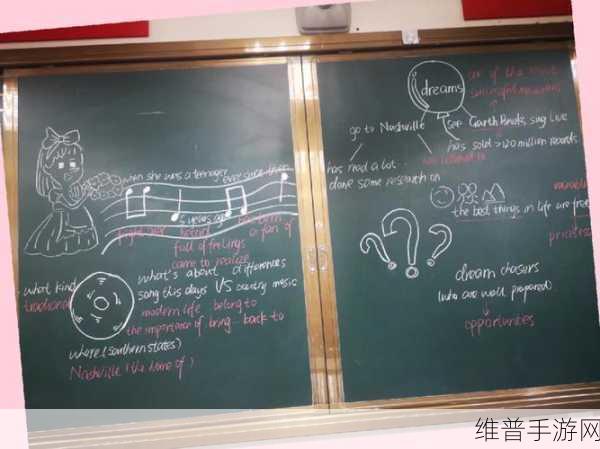 when she was a teenager ever since then
5 years ago
fight over
full of feelings a fan of
came to realize
what kind
traditional
what's about differences
song this days VS country music
modern life belong to
the importance of bring -- back to
where (southern states)
Nashville (the home of )
dreams
one of the most
successful musicians
go to Nashville
see Garth Brooks sing live
has sold >120 million records
has had a lot..
done some research on
the best things in life are free
priceless
? ? ?
dream chasers
(who are well prepared)
opportunities
维普手游网